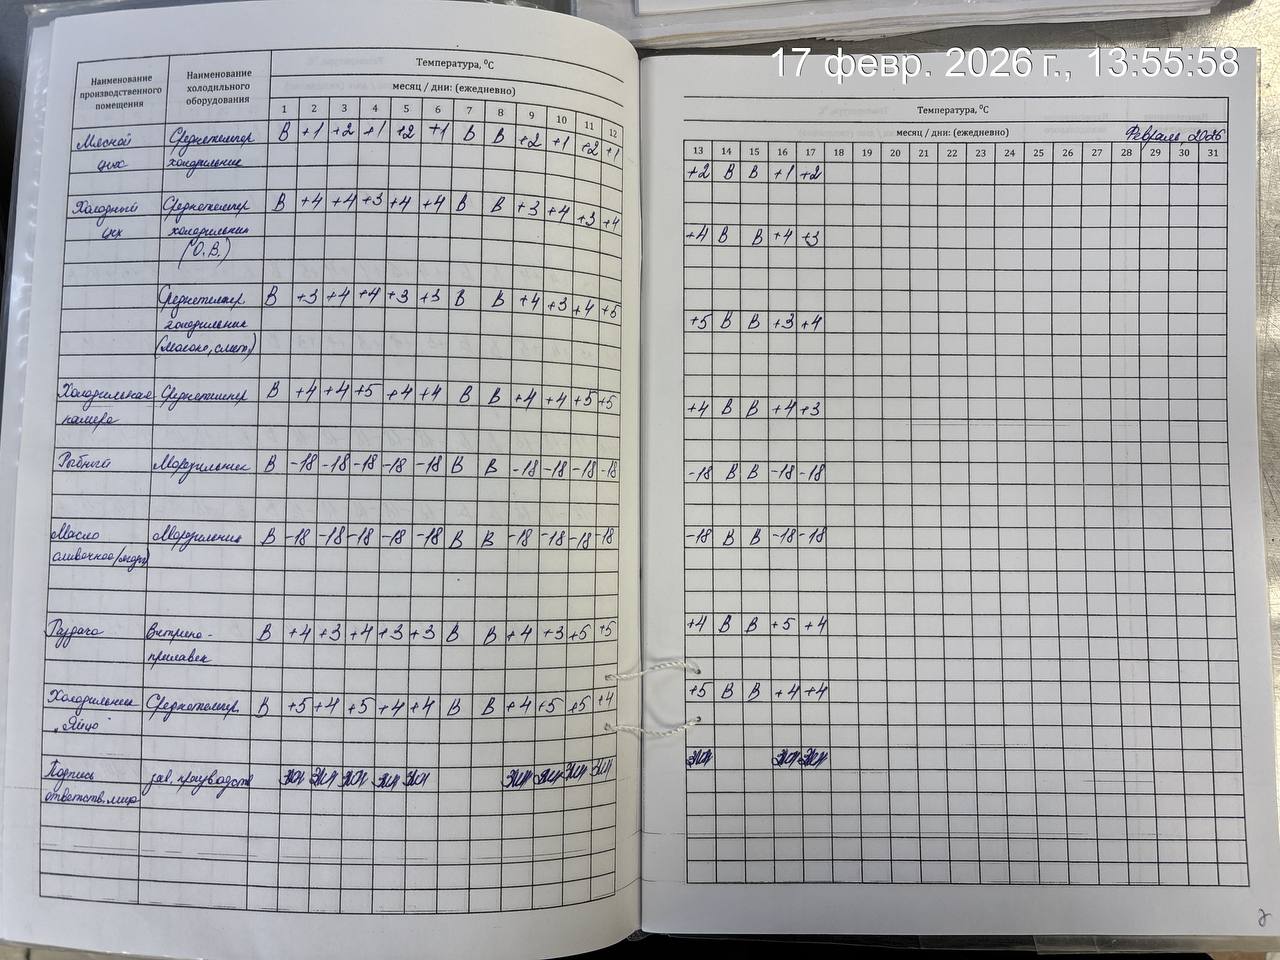 17 февр. 2026 г., 13:55:58
Наименование производственного помещения
Наименование холодильного оборудования
Температура, °С
месяц / дни: (ежедневно)
1 2 3 4 5 6 7 8 9 10 11 12
Мясной Среднетемпер В +1 +2 +1 +2 +1 В В +2 +1 +2 +1
цех холодильник
Холодный Среднетемпер В +4 +4 +3 +4 +4 В В +3 +4 +3 +4
цех холодильник
("О.В.)
Среднетемпер. В +3 +4 +4 +3 +3 В В +4 +3 +4 +5
холодильник
(молоко, смет)
Холодильная Среднетемпер В +4 +4 +5 +4 +4 В В +4 +4 +5 +5
камера
Рыбный Морозильник В -18 -18 -18 -18 -18 В В -18 -18 -18 -18
Масло Морозильник В -18 -18 -18 -18 -18 В В -18 -18 -18 -18
сливочное
Раздача Витрина- В +4 +3 +4 +3 +3 В В +4 +3 +5 +5
прилавок
Холодильник Среднетемпер. В +5 +4 +5 +4 +4 В В +4 +5 +5 +4
"Яйцо"
Подпись зав. производств
ответств. лица
Температура, °С
месяц / дни: (ежедневно) Февраль, 2026
13 14 15 16 17 18 19 20 21 22 23 24 25 26 27 28 29 30 31
+2 В В +1 +2
+4 В В +4 +3
+5 В В +3 +4
+4 В В +4 +3
-18 В В -18 -18
-18 В В -18 -18
+4 В В +5 +4
+5 В В +4 +4
2